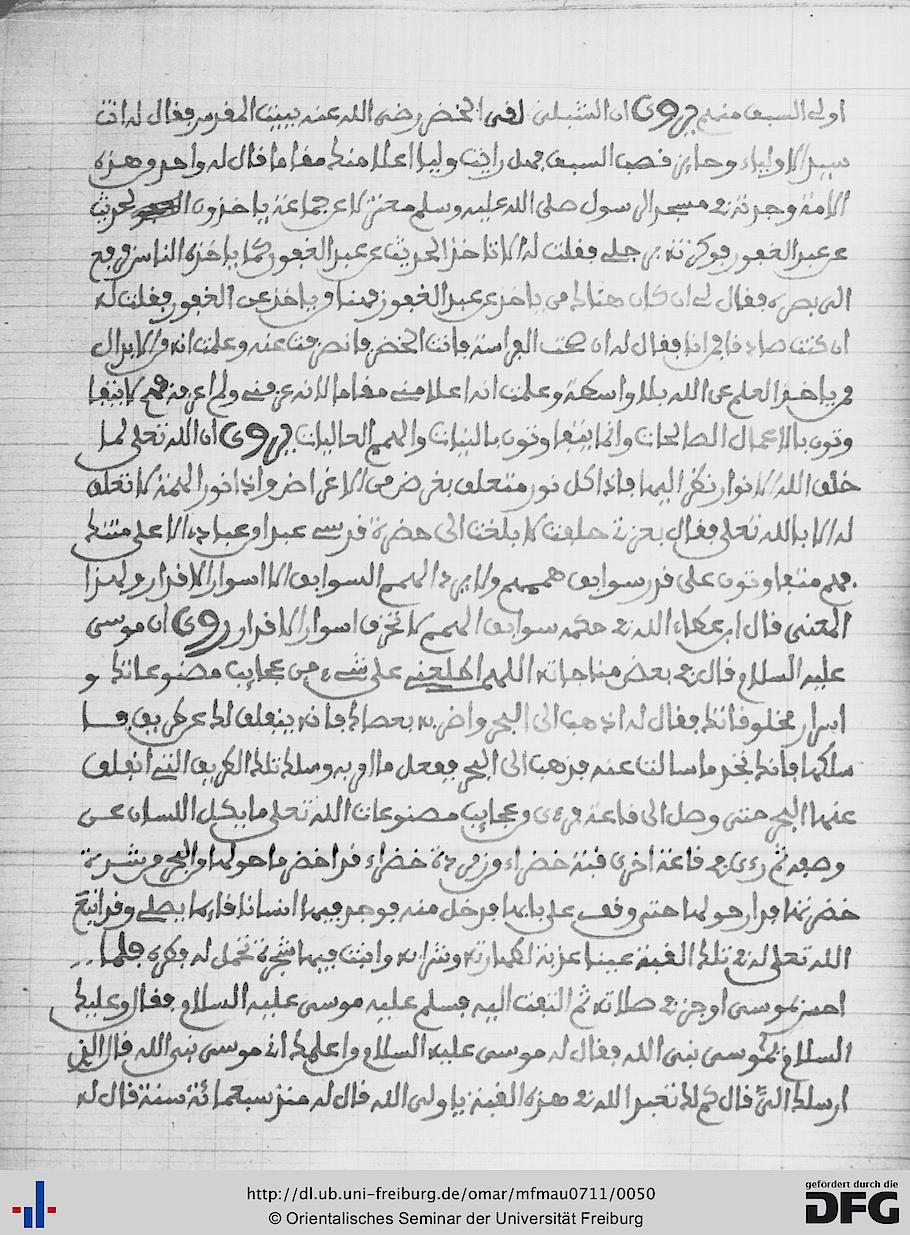 اولى السبق منهم روى ان الشبلى لقى الخضر رضى الله عنه ببيت المقدس فقال له انت
سيد الاولياء وحايز قصب السبق هل رايت وليا اعلا منك مقاما قال له واحد وهذه
الامة وجدته فى مسجد الرسول صلى الله عليه وسلم معتزلا عن جماعة ياخذون الحديث
عن عبد الغفور فوكزته برجلى فقلت له الا تاخذ الحديث عن عبد الغفور كما ياخذه الناس فرفع
الى بصره فقال لى ان كان هناك من ياخذ عن عبد الغفور فهنا من ياخذ عن الغفور فقلت له
ان كنت صادقا فمن انا فقال له ان صحت الفراسة فانت الخضر فانصرفت عنه وعلمت انه من الابدال
من ياخذ العلم عن الله بلا واسطة وعلمت انه اعلا منى مقاما لانه عرفنى ولم اعرفه فهم لا يتفا
وتون بالاعمال الصالحات وانما يتفاوتون بالنيات والهمم العاليات روى ان الله تعلى لما
خلق الله الانوار نظر اليها فاذا كل نور متعلق بغرض من الاغراض واذا نور الهمة لا تعلق
له الا بالله تعلى فقال بعزتى حلفت لا بلغت الى حضرة قدسى عبد من عبادى الا على متنك
فهم متفاوتون على قدر سوابق هممهم ولا يرد الهمم السوابق الا اسوار الاقدار ولهذا
المعنى قال ابن عطاء الله فى حكمه سوابق الهمم لا تخرق اسوار الاقدار روى ان موسى
عليه السلام قال فى بعض مناجاته اللهم اطلعنى على شىء من عجايب مصنوعاتك و
اسرار مخلوقاتك فقال له اذهب الى البحر واضربه بعصاك فانه ينفلق لك عن طريق فا
سلكها فانك تجد ما سالت عنه فذهب الى البحر ففعل ما امر به وسلك تلك الطريق التى انفلق
عنها البحر حتى وصل الى قاعه فرءى من عجايب مصنوعات الله تعلى ما يكل اللسان عن
وصفه ثم رءى فى قاعة اخرى قبة خضراء من زمردة خضراء قد اخضر ما حولها من البحر من شدة
خضرتها فدار حولها حتى وقف على بابها فدخل منه فوجد فيها انسانا قايما يصلى وقد انبع
الله تعلى له فى تلك القبة عينا عذبة لطهارته وشرابه وانبت فيها شجرة تحمل له فطره فلما
احس بموسى اوجز فى صلاته ثم التفت اليه فسلم عليه موسى عليه السلام فقال وعليك
السلام يا موسى نبى الله فقال له موسى عليه السلام من اعلمك انى موسى نبى الله قال الذى
ارسلك الى قال كم لك تعبد الله فى هذه القبة يا ولى الله قال له منذ سبعمائة سنة قال له
http://dl.ub.uni-freiburg.de/omar/mfmau0711/0050
© Orientalisches Seminar der Universität Freiburg
gefördert durch die
DFG